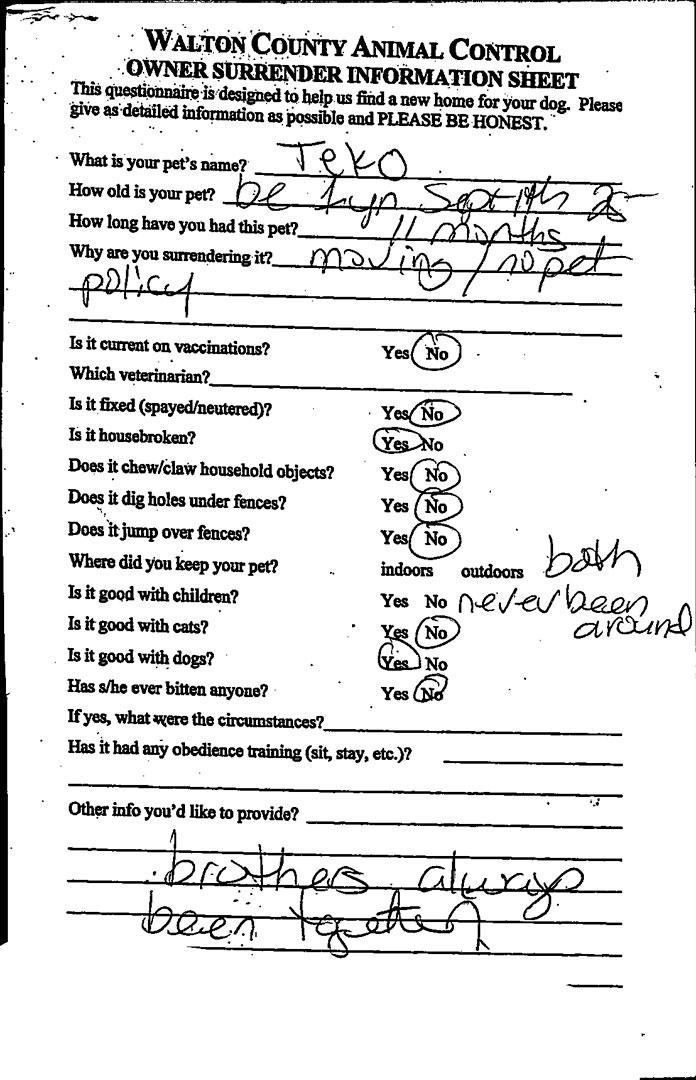 WALTON COUNTY ANIMAL CONTROL
OWNER SURRENDER INFORMATION SHEET
This questionnaire is designed to help us find a new home for your dog. Please
give as detailed information as possible and PLEASE BE HONEST.
What is your pet's name? Teko
How old is your pet? be 1yr Sept 19th 25
How long have you had this pet? 11 months
Why are you surrendering it? moving / no pet
policy
Is it current on vaccinations? Yes No
Which veterinarian?
Is it fixed (spayed/neutered)? Yes No
Is it housebroken? Yes No
Does it chew/claw household objects? Yes No
Does it dig holes under fences? Yes No
Does it jump over fences? Yes No
Where did you keep your pet? indoors outdoors both
Is it good with children? Yes No never been
around
Is it good with cats? Yes No
Is it good with dogs? Yes No
Has s/he ever bitten anyone? Yes No
If yes, what were the circumstances?
Has it had any obedience training (sit, stay, etc.)?
Other info you'd like to provide?
brothers always
been together